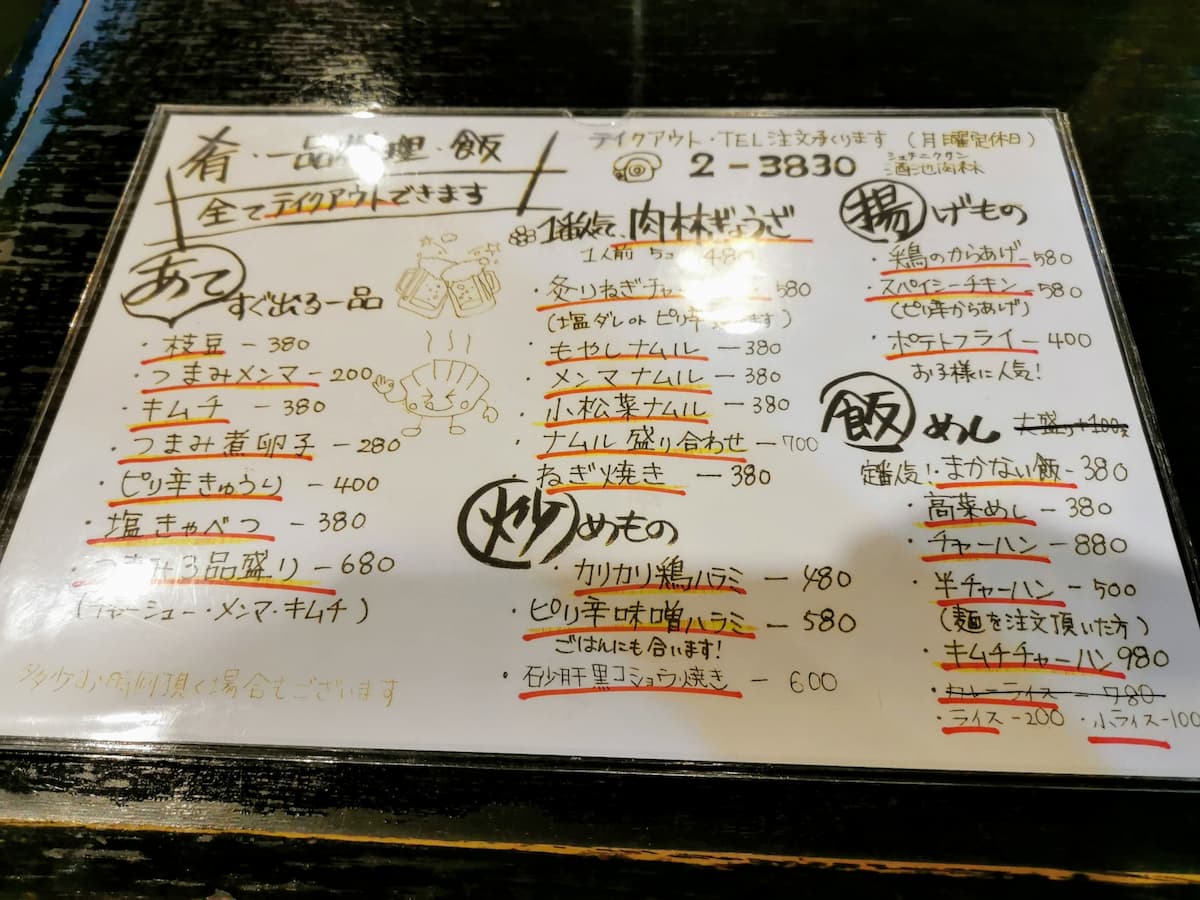 肴・一品料理・飯
全てテイクアウトできます
テイクアウト・TEL注文承ります (月曜定休日)
2-3830
シュチニクリン
酒池肉林
あて
すぐ出る一品
・枝豆 - 380
・つまみメンマ - 200
・キムチ - 380
・つまみ煮卵子 - 280
・ピリ辛きゅうり - 400
・塩きゃべつ - 380
・つまみ3品盛り - 680
(チャーシュー・メンマ・キムチ)
多少お時間頂く場合もございます
1番人気、肉林ぎょうざ
1人前 5コ 480
・炙りねぎチャー 580
(塩ダレor ピリ辛 ます)
・もやしナムル - 380
・メンマナムル - 380
・小松菜ナムル - 380
・ナムル盛り合わせ - 700
・ねぎ焼き - 380
炒めもの
・カリカリ鶏ハラミ - 480
・ピリ辛味噌ハラミ - 580
ごはんにも合います!
・砂肝黒コショウ焼き - 600
揚げもの
・鶏のからあげ - 580
・スパイシーチキン - 580
(ピリ辛からあげ)
・ポテトフライ - 400
お子様に人気!
飯めし 大盛り+100
定番人気!・まかない飯 - 380
・高菜めし - 380
・チャーハン - 880
・半チャーハン - 500
(麺を注文頂いた方)
・キムチチャーハン 980
・カレーライス - 780
・ライス - 200 ・小ライス - 100